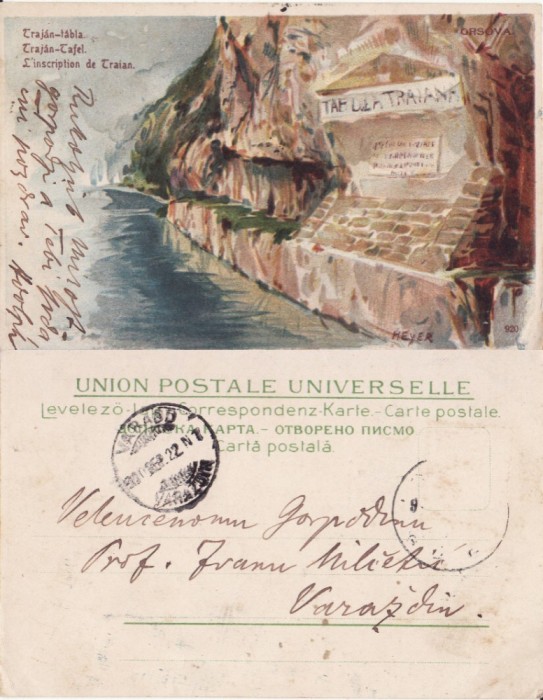 Traján-tábla.
Traján-Tafel.
L'inscription de Traian.
ORSOVA.
TABULA TRAIANA
Rukoljub Milosti
gospogji a Tebi
pozdrav. Adolph
HEYER
920
UNION POSTALE UNIVERSELLE
Levelező-Lap.-Correspondenz-Karte.-Carte postale.
КАРТА.–ОТВОРЕНО ПИСМО
Cartă postală.
VARASD
22 N
VARAŽDIN
9
Velecenomu Gospodinu
Prof. Franu Milčetić
Varaždin.